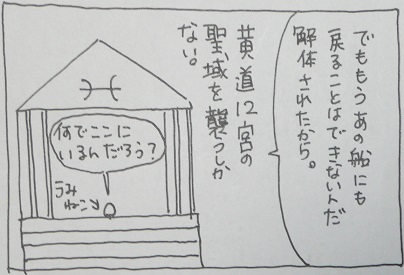 でももうあの船にも
戻ることはできないんだ
解体されたから。
黄道12宮の
聖域を襲うしか
ない。
何でここに
いるんだろう？
うみ
ねこ